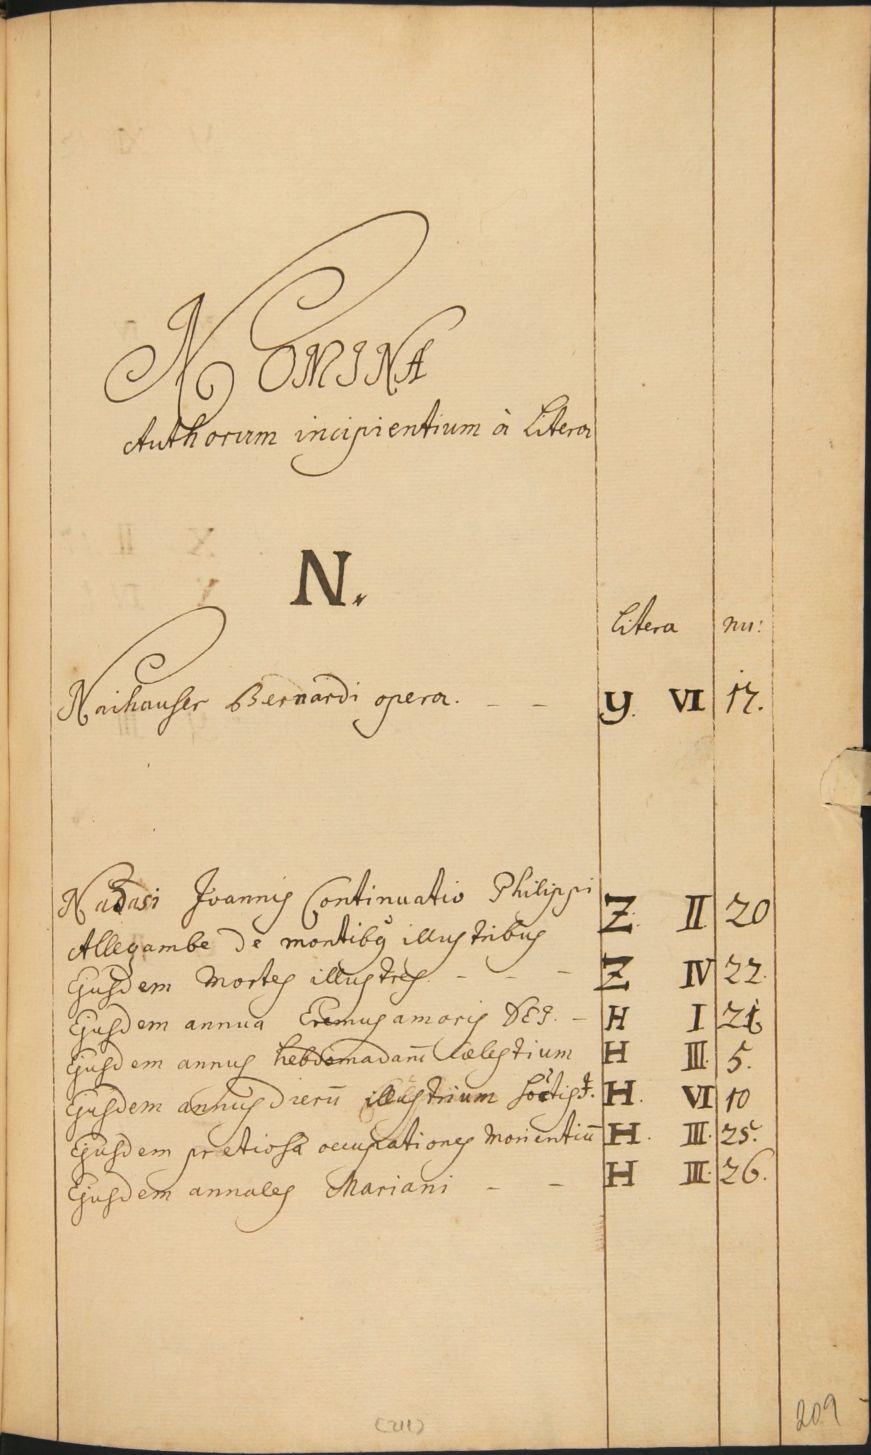 NOMINA
Authorum incipientium à Litera
N.
Litera nu:
Naihauser Bernardi opera. - - Y. VI 17.
Nadasi Joannis Continuatio Philippi
Allegambe de montibq illustribus Z. II. 20
Ejusdem Mortes illustres. - - - Z IV 22.
Ejusdem annua Eremus amoris DEI. - H I 21
Ejusdem annus hebdomadarū coelestium H III. 5.
Ejusdem annus dierū illustrium Soctis J. H. VI 10
Ejusdem pretiosa occupationes Morientiū H. III. 25.
Ejusdem annales Mariani - - H III. 26.
(211)
209